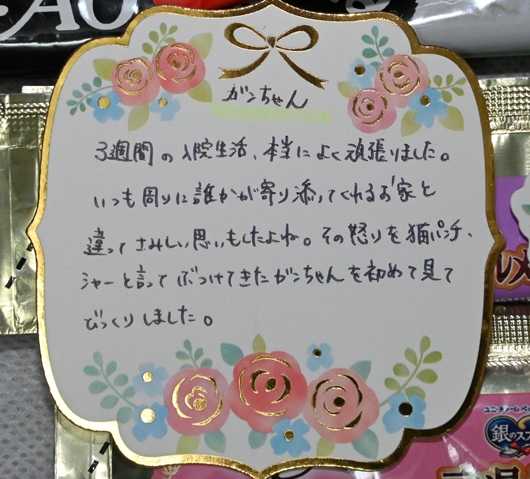 AO
ガンちゃん
3週間の入院生活、本当によく頑張りました。
いつも周りに誰かが寄り添ってくれるお家と
違ってさみしい思いもしたよね。その怒りを猫パンチ、
シャーと言ってぶつけてきたガンちゃんを初めて見て
びっくりしました。
ルメ
ユニ・チャーム
銀のスプ